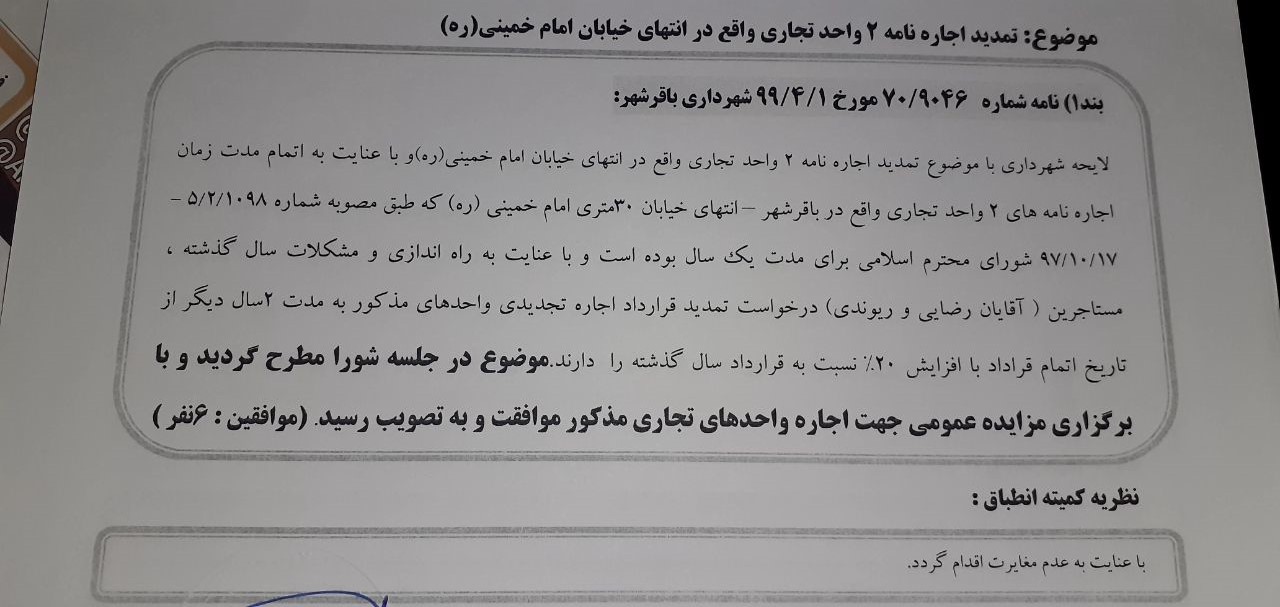 موضوع: تمدید اجاره نامه ۲ واحد تجاری واقع در انتهای خیابان امام خمینی(ره)
بند۱) نامه شماره ۷۰/۹۰۴۶ مورخ ۹۹/۴/۱ شهرداری باقرشهر:
لایحه شهرداری با موضوع تمدید اجاره نامه ۲ واحد تجاری واقع در انتهای خیابان امام خمینی(ره)و با عنایت به اتمام مدت زمان
اجاره نامه های ۲ واحد تجاری واقع در باقرشهر –انتهای خیابان ۳۰متری امام خمینی (ره) که طبق مصوبه شماره ۵/۲/۱۰۹۸ –
۹۷/۱۰/۱۷ شورای محترم اسلامی برای مدت یک سال بوده است و با عنایت به راه اندازی و مشکلات سال گذشته ،
مستاجرین ( آقایان رضایی و ریوندی) درخواست تمدید قرارداد اجاره تجدیدی واحدهای مذکور به مدت ۲سال دیگر از
تاریخ اتمام قراداد با افزایش ۲۰٪ نسبت به قرارداد سال گذشته را دارند.موضوع در جلسه شورا مطرح گردید و با
برگزاری مزایده عمومی جهت اجاره واحدهای تجاری مذکور موافقت و به تصویب رسید. (موافقین : ۶نفر )
نظریه کمیته انطباق :
با عنایت به عدم مغایرت اقدام گردد.